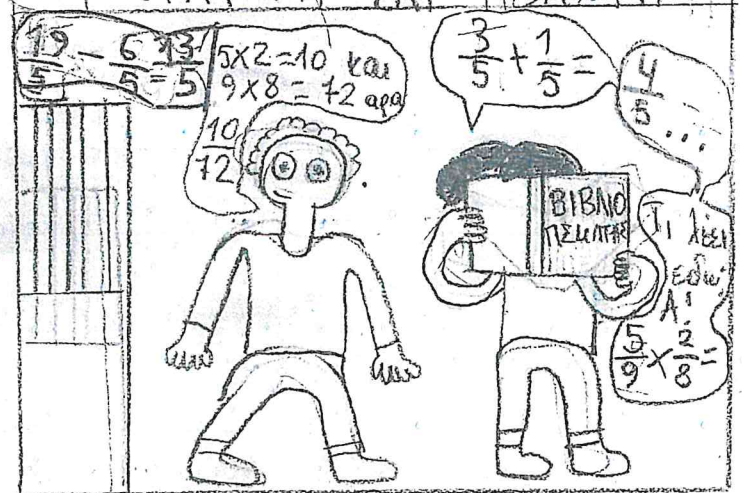 19/5 - 6/5 = 13/5
5x2=10 και
9x8=72 αρα
10/72
3/5 + 1/5 =
4/5 ...
ΒΙΒΛΙΟ
ΠΕΜΠΤΗΣ
Τι λέει
εδώ
Α!
5/9 x 2/8 =